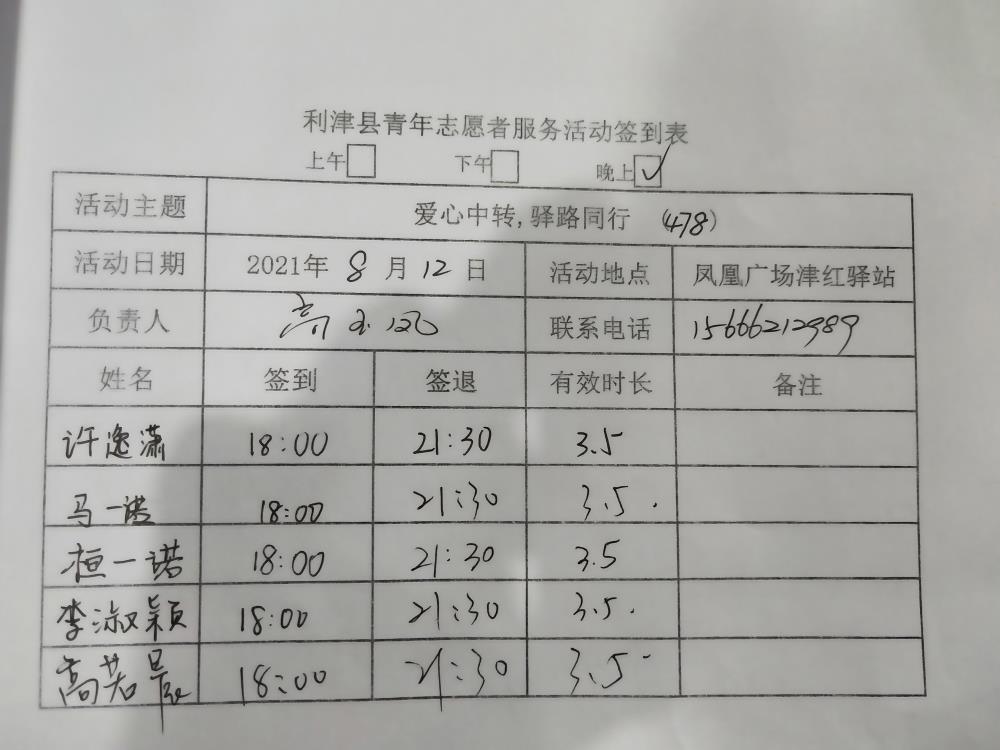 利津县青年志愿者服务活动签到表
上午 下午 晚上
活动主题 爱心中转,驿路同行 (478)
活动日期 2021年 8 月 12 日 活动地点 凤凰广场津红驿站
负责人 高 联系电话 15666212989
姓名 签到 签退 有效时长 备注
许逸潇 18:00 21:30 3.5
马一诺 18:00 21:30 3.5
桓一诺 18:00 21:30 3.5
李淑颖 18:00 21:30 3.5
高若 18:00 21:30 3.5